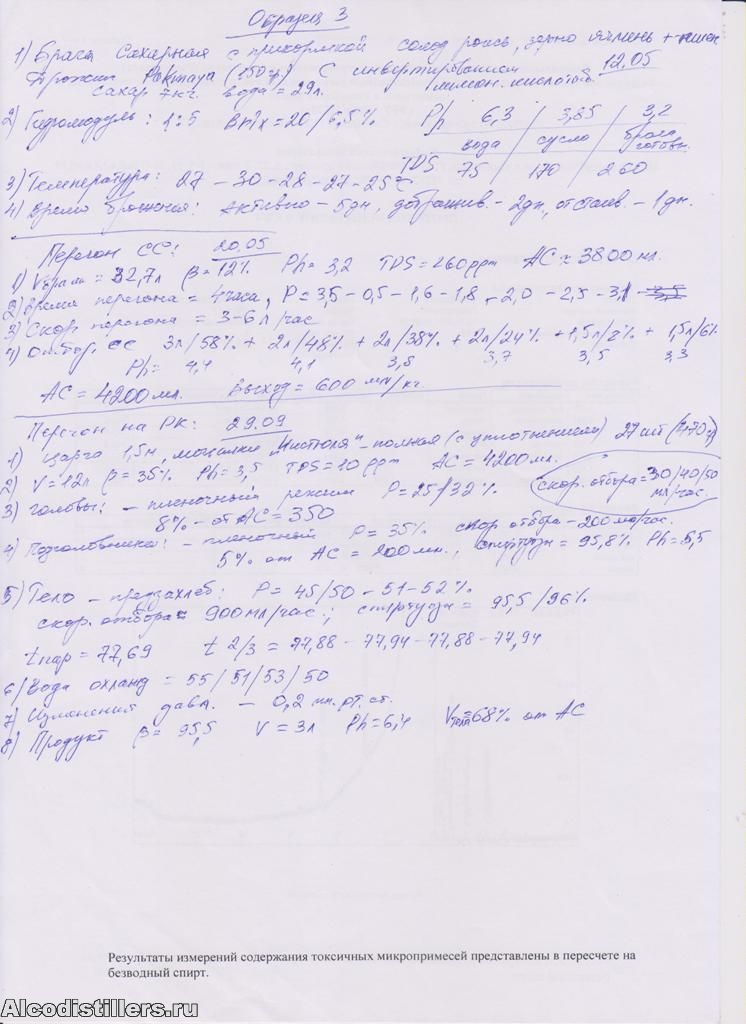 Образец 3
1) Брага сахарная с прикормкой солод рожь, зерно ячмень + пшен
Дрожжи Pakmaya (150гр.) С инвертированием 12.05
сахар 7кг. вода = 29л. лимон. кислотой.
2) Гидромодуль: 1:5 Brix = 20/6,5% Ph 6,3 / 3,85 / 3,2
вода / сусло / брага готовы.
TDS 75 / 170 / 260
3) Температура: 27 – 30 – 28 – 27 – 25°C
4) Время брожения: активно – 5дн, дображив. – 2дн, отстаив. – 1дн.
Перегон СС: 20.05
1) Vбраги = 32,7л β = 12% Ph = 3,2 TDS = 260ppm АС ≈ 3800 мл.
2) Время перегона = 4часа, P = 3,5 – 0,5 – 1,6 – 1,8 – 2,0 – 2,5 – 3,1 – 3,5
3) Скор. перегона = 3-6л/час
4) Отбор СС 3л/58% + 2л/48% + 2л/38% + 2л/24% + 1,5л/2% + 1,5л/6%
Ph = 4,4 4,1 3,8 3,7 3,5 3,3
АС = 4200мл. Выход = 600 мл/кг.
Перегон на РК: 29.09
1) Царга 1,5м, мочалки "Чистюля" – полная (с уплотнением) 27шт (470г)
2) V = 12л β = 35% Ph = 3,5 TDS = 10ppm АС = 4200мл.
3) Головы: – пленочный режим P = 25/32% скор. отбора = 30/40/50 мл/час.
8% – от АС = 350
4) Подголовники: – пленочный P = 35% скор отбора – 200мл/час.
5% от АС = 200мл., спиртуозн = 95,8% Ph = 5,5
5) Тело – предзахлеб: P = 45/50 – 51 – 52%
скор. отбора = 900мл/час.; спиртуозн = 95,5/96%
t пар = 77,69 t 2/3 = 77,88 – 77,94 – 77,88 – 77,94
6) Вода охлажд = 55/51/53/50
7) Изменения давл. – 0,2 мм.рт.ст.
8) Продукт β = 95,5 V = 3л Ph = 6,4 Vтела = 68% от АС
Результаты измерений содержания токсичных микропримесей представлены в пересчете на
безводный спирт.
Alcodistillers.ru